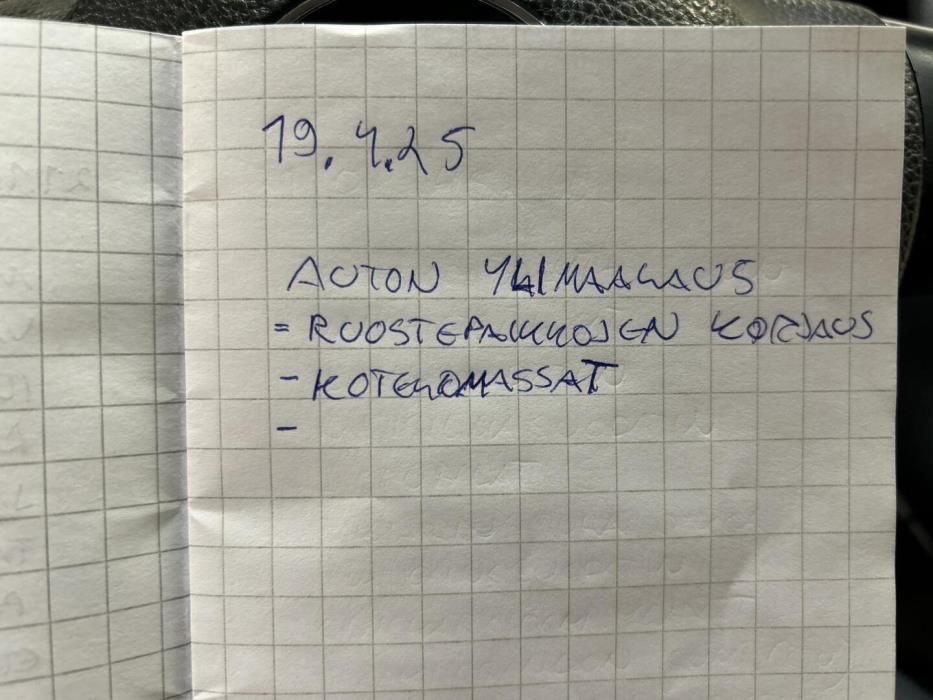 19.4.25
AUTON YLIMAALAUS
= RUOSTEPAIKKOJEN KORJAUS
- KOTELOMASSAT
-